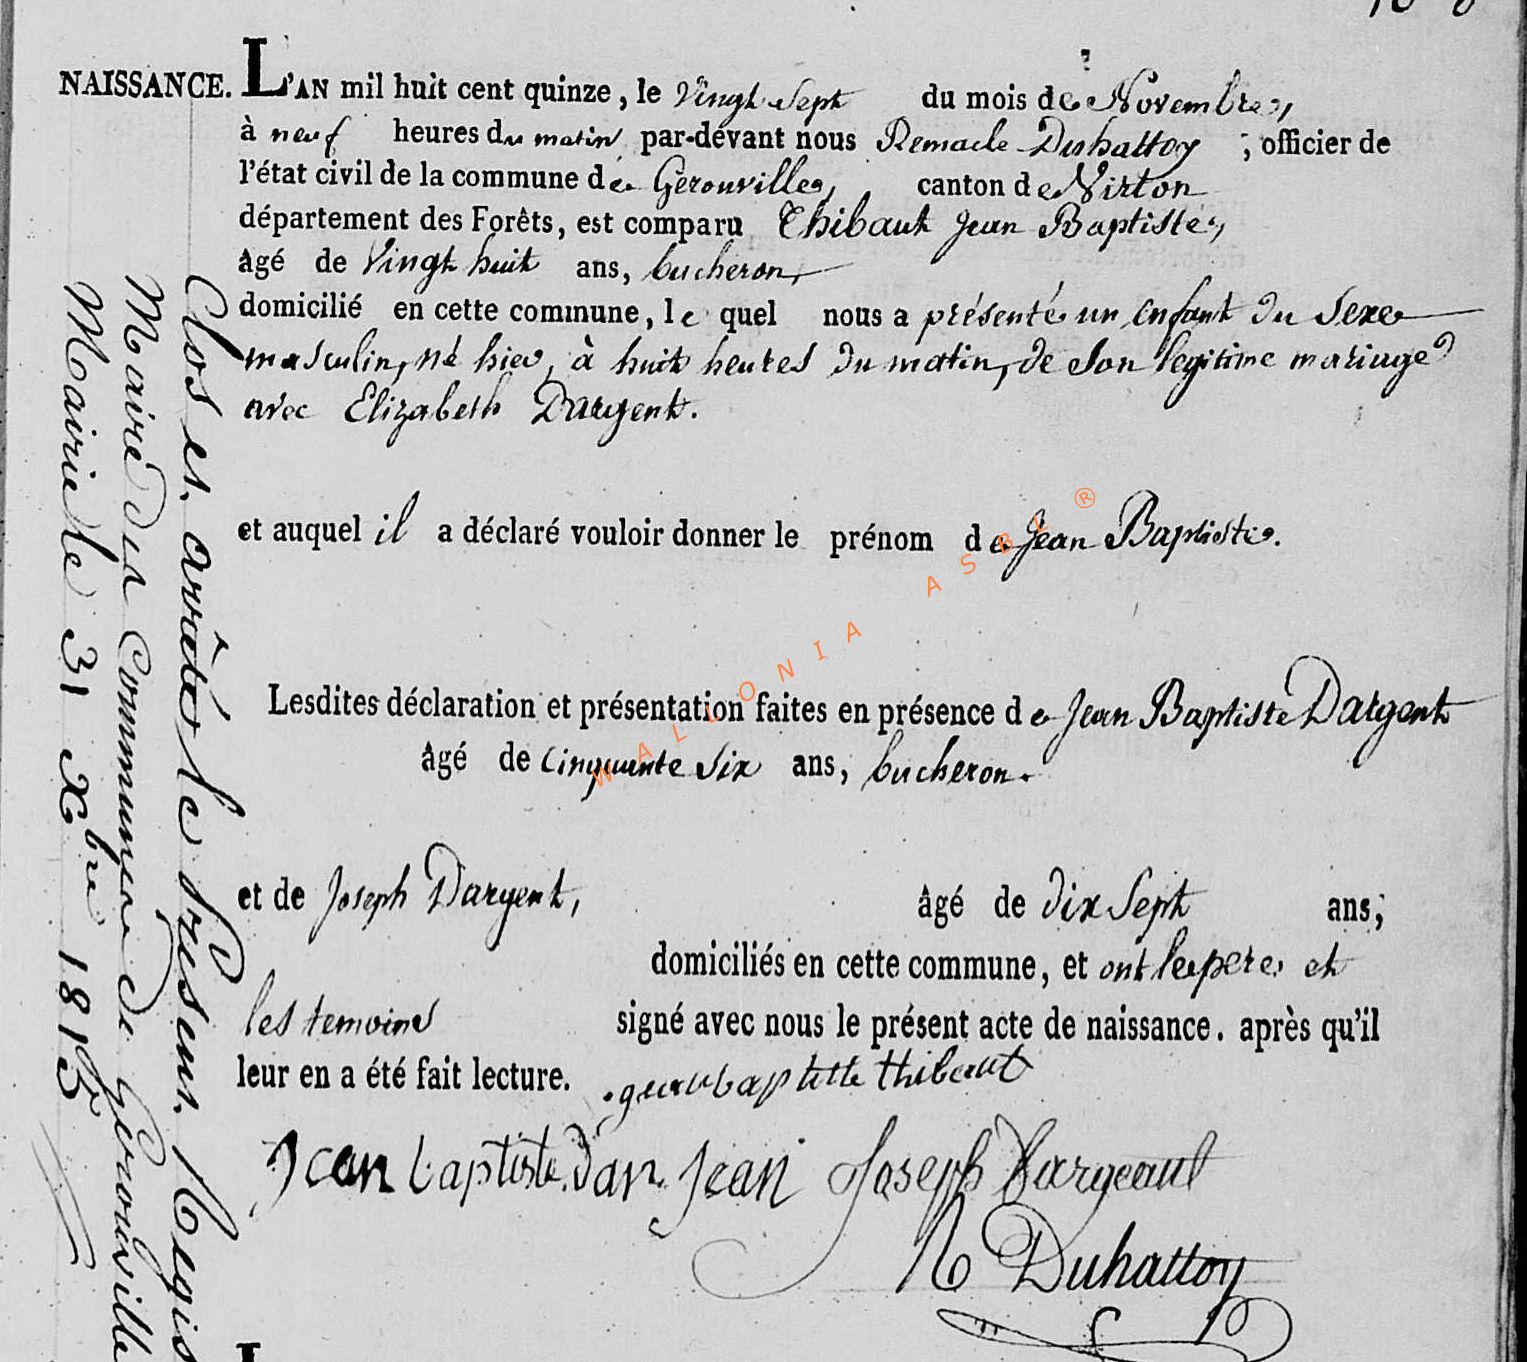 NAISSANCE. L'AN mil huit cent quinze, le Vingt Sept du mois de Novembre,
à neuf heures du matin par-devant nous Remacle Duhattoy, officier de
l'état civil de la commune de Gerouville, canton de Virton
département des Forêts, est comparu Thibaut Jean Baptiste,
âgé de Vingt huit ans, bucheron,
domicilié en cette commune, le quel nous a présenté un enfant du Sexe
masculin, né hier, à huit heures du matin, de Son legitime mariage
avec Elizabeth Dargent.
et auquel il a déclaré vouloir donner le prénom de Jean Baptiste.
Lesdites déclaration et présentation faites en présence de Jean Baptiste Dargent
âgé de Cinquante Six ans, bucheron.
et de Joseph Dargent, âgé de dix Sept ans,
domiciliés en cette commune, et ont le pere et
les temoins signé avec nous le présent acte de naissance. après qu'il
leur en a été fait lecture.
jean baptiste thibaut
Jean baptiste dar Jean Joseph Dargeant
R Duhattoy
Clos et arrêté le présent Regis
Maire de la Commune de Gerouville
Mairie le 31 Xbre 1815
WALLONIA ASBL ®